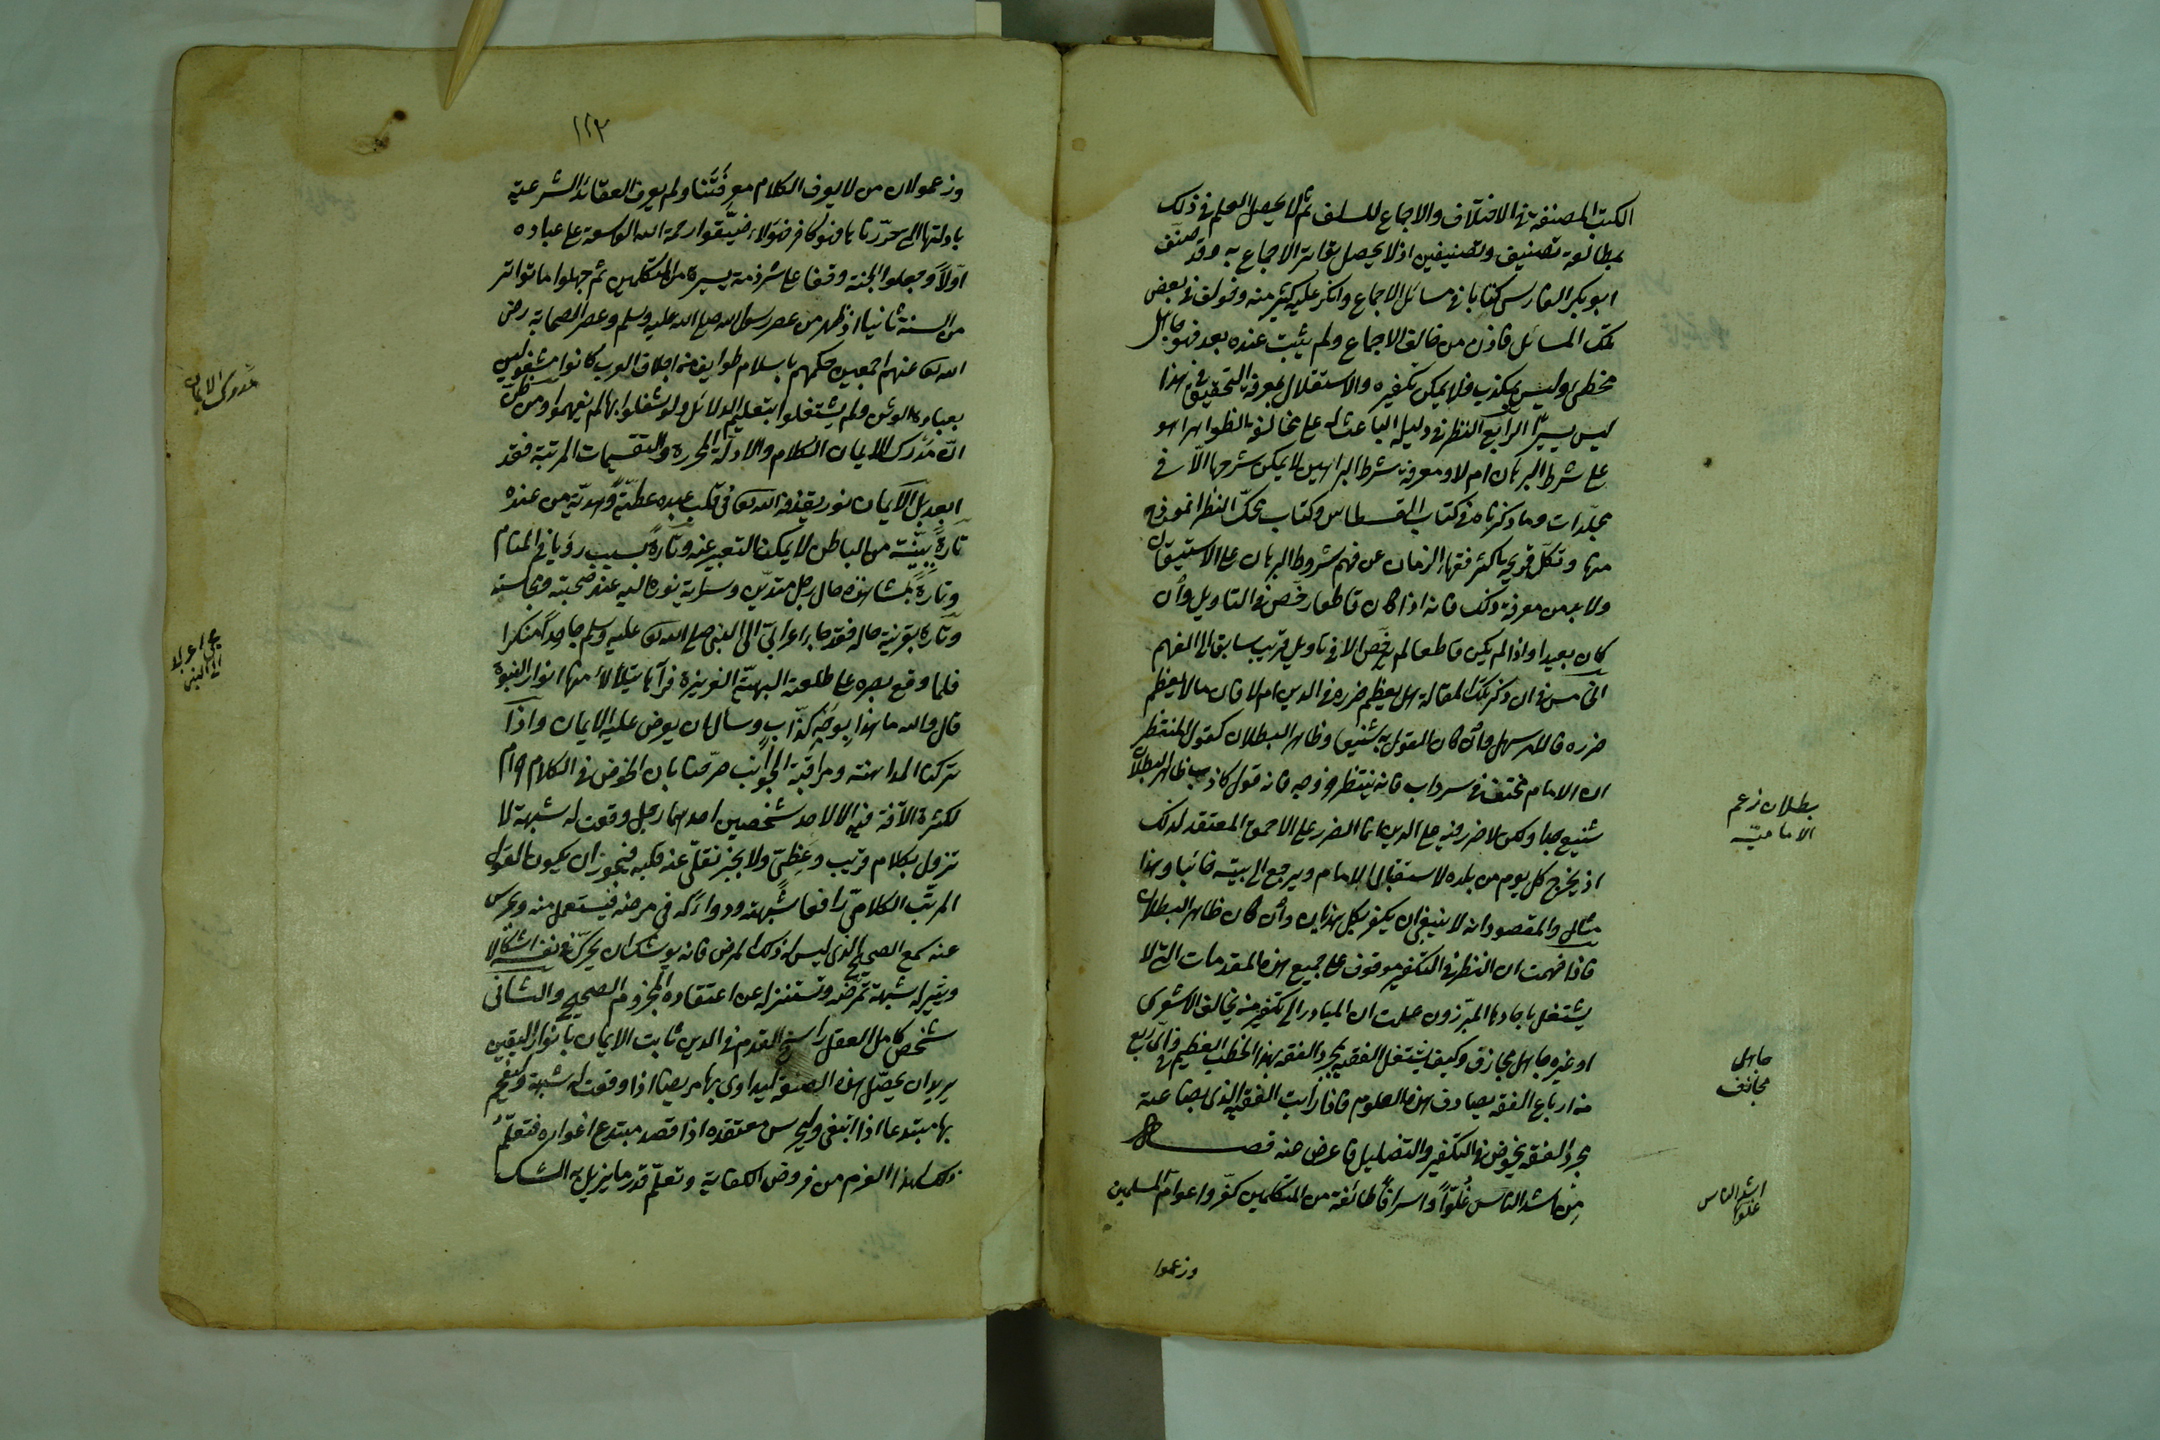 الكتب المصنفة فى الاختلاف والاجماع للسلف ثم لا يحصل العلم فى ذلك
بمطالعة تصنيف وتصنيفين اذ لا يحصل تواتر الاجماع به وقد صنف
ابو بكر الفارسى كتابا فى مسائل الاجماع وانكر عليه كثير منه وخولف فى بعض
تلك المسائل فاذن من خالف الاجماع ولم يثبت عنده بعد فهو جاهل
مخطئ وليس بمكذب فلا يمكن تكفيره والاستقلال بمعرفة التحقيق فى هذا
ليس بيسير الرابع النظر فى دليله الباعث له على مخالفة الظواهر اهو
على شرط البرهان ام لا ومعرفة شرط البراهين لا يمكن شرحها الا فى
مجلدات وما ذكرناه فى كتاب القسطاس وكتاب محك النظر انموذج
منها وتكل قريحة اكثر فقهاء الزمان عن فهم شروط البرهان على الاستيفاء
ولا بد من معرفة ذلك فانه اذا كان قاطعا رخص فى التاويل وان
كان بعيدا واذا لم يكن قاطعا لم يرخص الا فى تاويل قريب سابق الى الفهم
الخامس فى ان ذكر تلك المقالة هل يعظم ضرره فى الدين ام لا فان ما لا يعظم
ضرره فالامر سهل وان كان القول به شنيعا وظاهر البطلان كقول المنتظر
ان الامام مختف فى سرداب فانه ينتظر خروجه فانه قول كاذب ظاهر البطلان
شنيع جدا ولكن لا ضرر فيه على الدين انما الضرر على الاحمق المعتقد لذلك
اذ يخرج كل يوم من بلده لاستقبال الامام ويرجع الى بيته خائبا وهذا
مثال والمقصود انه لا ينبغى ان يكفر بكل هذيان وان كان ظاهر البطلان
فاذا فهمت ان النظر فى التكفير موقوف على جميع هذه المقدمات التى لا
يشتغل باحادها المبرزون علمت ان المبادر الى تكفير من يخالف الاشعرى
او غيره جاهل مجازف وكيف يشتغل الفقيه بمجرد الفقه بهذا الخطب العظيم وفى اى ربع
من ارباع الفقه يصادف هذه العلوم فاذا رايت الفقيه الذى بضاعته
مجرد الفقه يخوض فى التكفير والتضليل فاعرض عنه فصل
من اشد الناس غلوا واسرافا طائفة من المتكلمين كفروا عوام المسلمين
وزعموا
بطلان زعم
الامامية
جاهل
مجازف
اشد الناس
غلوا
١٢٣
وزعموا ان من لا يعرف الكلام معرفتنا ولم يعرف العقائد الشرعية
بادلتها التى حررناها فهو كافر فهؤلاء ضيقوا رحمة الله الواسعة على عباده
اولا وجعلوا الجنة وقفا على شرذمة يسيرة من المتكلمين ثم جهلوا ما تواتر
من السنة ثانيا اذ ظهر من عصر رسول الله صلى الله عليه وسلم وعصر الصحابة رضى
الله تعا عنهم اجمعين حكمهم باسلام طوايف من اجلاف العرب كانوا مشغولين
بعبادة الوثن ولم يشتغلوا بتعليم الدلائل ولو شغلوا بها لم يفهموا ومن ظن
ان مدرك الايمان الكلام والادلة المحررة والتقسيمات المرتبة فقد
ابعد بل الايمان نور يقذفه الله تعا فى قلب عبده عطية وهدية من عنده
تارة ببينة من الباطن لا يمكن التعبير عنه وتارة بسبب رؤيا فى المنام
وتارة بمشاهدة حال رجل متدين وسراية نوره اليه عند صحبته ومجالسته
وتارة بقرينة حاله فقد جاء اعرابى الى النبى صلى الله تعا عليه وسلم جاحدا منكرا
فلما وقع بصره على طلعته البهية الغزيرة فرآها يتلألأ منها انوار النبوة
قال والله ما هذا بوجه كذاب وسال ان يعرض عليه الايمان واذا
تركنا المداهنة ومراقبة الجوانب صرحنا بان الخوض فى الكلام حرام
لكثرة الآفة فيه الا لاحد شخصين احدهما رجل وقعت له شبهة لا
تزول بكلام قريب وعظى ولا بخبر نقلى عنه قلبه فيجوز ان يكون القول
المرتب الكلامى رافعا شبهته ودواء له فى مرضه فيستعمل منه ويحرس
عنه سمع الصحيح الذى ليس له ذلك المرض فانه يوشك ان يحرك فى نفسه اشكالا
ويثير له شبهة تمرضه وتستنزله عن اعتقاده المجزوم الصحيح والثانى
شخص كامل العقل راسخ القدم فى الدين ثابت الايمان بانوار اليقين
يريد ان يحصل هذه الصنعة ليداوى بها مريضا اذا وقعت له شبهة وليفحم
بها مبتدعا اذا انبغى وليحرس معتقده اذا قصد مبتدع اغواءه فتعلم
ذلك لهذا العزم من فروض الكفاية وتعلم قدر ما يزيل به الشك
مدرك الايمان
مجئ اعرابى
الى النبى